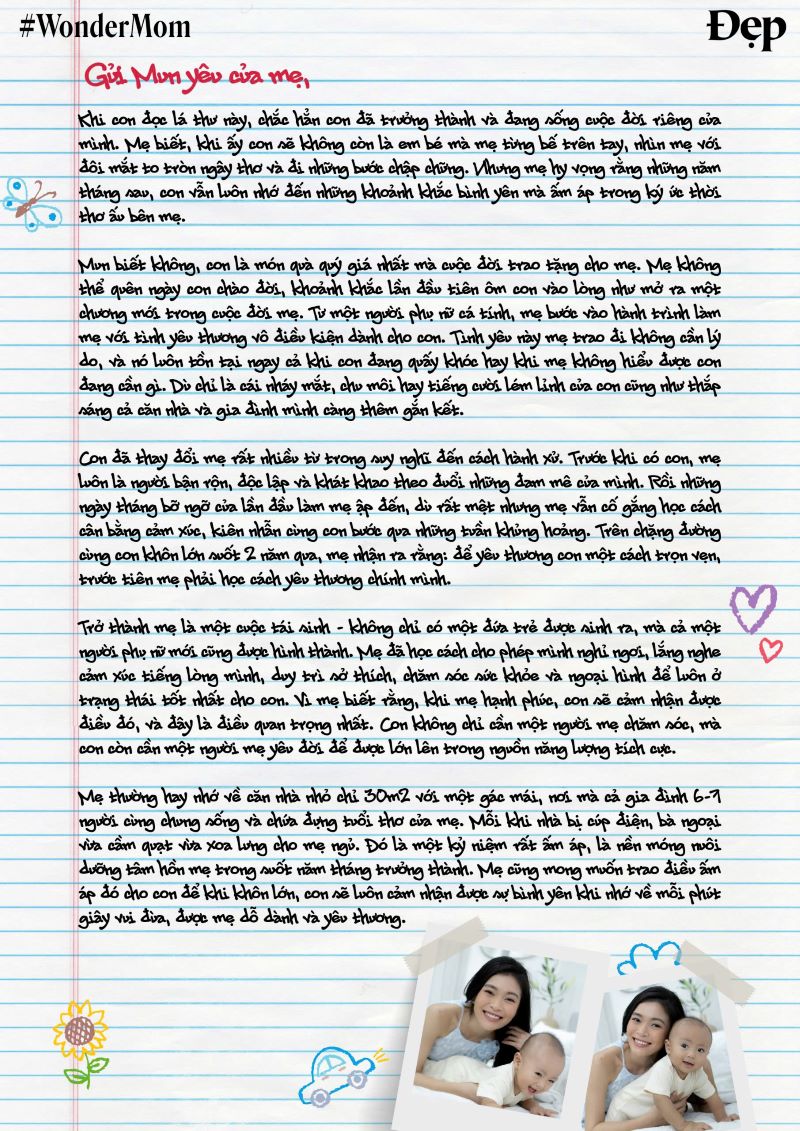 #WonderMom
Đẹp
Gửi Mun yêu của mẹ,
Khi con đọc lá thư này, chắc hẳn con đã trưởng thành và đang sống cuộc đời riêng của
mình. Mẹ biết, khi ấy con sẽ không còn là em bé mà mẹ từng bế trên tay, nhìn mẹ với
đôi mắt to tròn ngây thơ và đi những bước chập chững. Nhưng mẹ hy vọng rằng những năm
tháng sau, con vẫn luôn nhớ đến những khoảnh khắc bình yên mà ấm áp trong ký ức thời
thơ ấu bên mẹ.
Mun biết không, con là món quà quý giá nhất mà cuộc đời trao tặng cho mẹ. Mẹ không
thể quên ngày con chào đời, khoảnh khắc lần đầu tiên ôm con vào lòng như mở ra một
chương mới trong cuộc đời mẹ. Từ một người phụ nữ cá tính, mẹ bước vào hành trình làm
mẹ với tình yêu thương vô điều kiện dành cho con. Tình yêu này mẹ trao đi không cần lý
do, và nó luôn tồn tại ngay cả khi con đang quấy khóc hay khi mẹ không hiểu được con
đang cần gì. Dù chỉ là cái nháy mắt, chu môi hay tiếng cười lém lỉnh của con cũng như thắp
sáng cả căn nhà và gia đình mình càng thêm gắn kết.
Con đã thay đổi mẹ rất nhiều từ trong suy nghĩ đến cách hành xử. Trước khi có con, mẹ
luôn là người bận rộn, độc lập và khát khao theo đuổi những đam mê của mình. Rồi những
ngày tháng bỡ ngỡ của lần đầu làm mẹ ập đến, dù rất mệt nhưng mẹ vẫn cố gắng học cách
cân bằng cảm xúc, kiên nhẫn cùng con bước qua những tuần khủng hoảng. Trên chặng đường
cùng con khôn lớn suốt 2 năm qua, mẹ nhận ra rằng: để yêu thương con một cách trọn vẹn,
trước tiên mẹ phải học cách yêu thương chính mình.
Trở thành mẹ là một cuộc tái sinh - không chỉ có một đứa trẻ được sinh ra, mà cả một
người phụ nữ mới cũng được hình thành. Mẹ đã học cách cho phép mình nghỉ ngơi, lắng nghe
cảm xúc tiếng lòng mình, duy trì sở thích, chăm sóc sức khỏe và ngoại hình để luôn ở
trạng thái tốt nhất cho con. Vì mẹ biết rằng, khi mẹ hạnh phúc, con sẽ cảm nhận được
điều đó, và đây là điều quan trọng nhất. Con không chỉ cần một người mẹ chăm sóc, mà
con còn cần một người mẹ yêu đời để được lớn lên trong nguồn năng lượng tích cực.
Mẹ thường hay nhớ về căn nhà nhỏ chỉ 30m2 với một gác mái, nơi mà cả gia đình 6-7
người cùng chung sống và chứa đựng tuổi thơ của mẹ. Mỗi khi nhà bị cúp điện, bà ngoại
vừa cầm quạt vừa xoa lưng cho mẹ ngủ. Đó là một kỷ niệm rất ấm áp, là nền móng nuôi
dưỡng tâm hồn mẹ trong suốt năm tháng trưởng thành. Mẹ cũng mong muốn trao điều ấm
áp đó cho con để khi khôn lớn, con sẽ luôn cảm nhận được sự bình yên khi nhớ về mỗi phút
giây vui đùa, được mẹ dỗ dành và yêu thương.